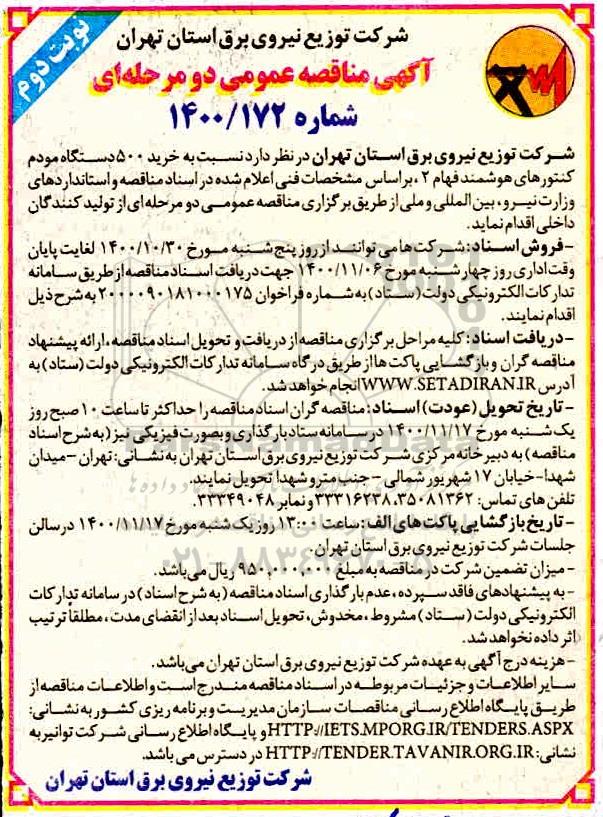 نوبت دوم
شرکت توزیع نیروی برق استان تهران
آگهی مناقصه عمومی دو مرحله‌ای
شماره ۱۴۰۰/۱۷۲
شرکت توزیع نیروی برق استان تهران در نظر دارد نسبت به خرید ۵۰۰ دستگاه مودم
کنتورهای هوشمند فهام ۲، براساس مشخصات فنی اعلام شده در اسناد مناقصه و استانداردهای
وزارت نیرو، بین المللی و ملی از طریق برگزاری مناقصه عمومی دو مرحله‌ای از تولید کنندگان
داخلی اقدام نماید.
-فروش اسناد: شرکت ها می توانند از روز پنج شنبه مورخ ۱۴۰۰/۱۰/۳۰ لغایت پایان
وقت اداری روز چهار شنبه مورخ ۱۴۰۰/۱۱/۰۶ جهت دریافت اسناد مناقصه از طریق سامانه
تدارکات الکترونیکی دولت (ستاد) به شماره فراخوان ۲۰۰۰۰۹۰۱۸۱۰۰۰۱۷۵ به شرح ذیل
اقدام نمایند.
-دریافت اسناد: کلیه مراحل برگزاری مناقصه از دریافت و تحویل اسناد مناقصه، ارائه پیشنهاد
مناقصه گران و بازگشایی پاکت ها از طریق درگاه سامانه تدارکات الکترونیکی دولت (ستاد) به
آدرس WWW.SETADIRAN.IR انجام خواهد شد.
-تاریخ تحویل (عودت) اسناد: مناقصه گران اسناد مناقصه را حداکثر تا ساعت ۱۰ صبح روز
یک شنبه مورخ ۱۴۰۰/۱۱/۱۷ در سامانه ستاد بارگذاری و بصورت فیزیکی نیز (به شرح اسناد
مناقصه) به دبیرخانه مرکزی شرکت توزیع نیروی برق استان تهران به نشانی: تهران -میدان
شهدا-خیابان ۱۷ شهریور شمالی - جنب مترو شهدا تحویل نمایند.
تلفن های تماس: ۳۵۰۸۱۳۶۲، ۳۳۳۱۶۲۳۸ و نمابر ۳۳۳۴۹۰۴۸.
-تاریخ بازگشایی پاکت های الف: ساعت ۱۳:۰۰ روز یک شنبه مورخ ۱۴۰۰/۱۱/۱۷ در سالن
جلسات شرکت توزیع نیروی برق استان تهران.
-میزان تضمین شرکت در مناقصه به مبلغ ۹۵۰,۰۰۰,۰۰۰ ریال می باشد.
-به پیشنهادهای فاقد سپرده، عدم بارگذاری اسناد مناقصه (به شرح اسناد) در سامانه تدارکات
الکترونیکی دولت (ستاد) مشروط، مخدوش، تحویل اسناد بعد از انقضای مدت، مطلقاً ترتیب
اثر داده نخواهد شد.
-هزینه درج آگهی به عهده شرکت توزیع نیروی برق استان تهران می باشد.
سایر اطلاعات و جزئیات مربوطه در اسناد مناقصه مندرج است و اطلاعات مناقصه از
طریق پایگاه اطلاع رسانی مناقصات سازمان مدیریت و برنامه ریزی کشور به نشانی:
HTTP://IETS.MPORG.IR/TENDERS.ASPX و پایگاه اطلاع رسانی شرکت توانیر به
نشانی: HTTP://TENDER.TAVANIR.ORG.IR در دسترس می باشد.
شرکت توزیع نیروی برق استان تهران